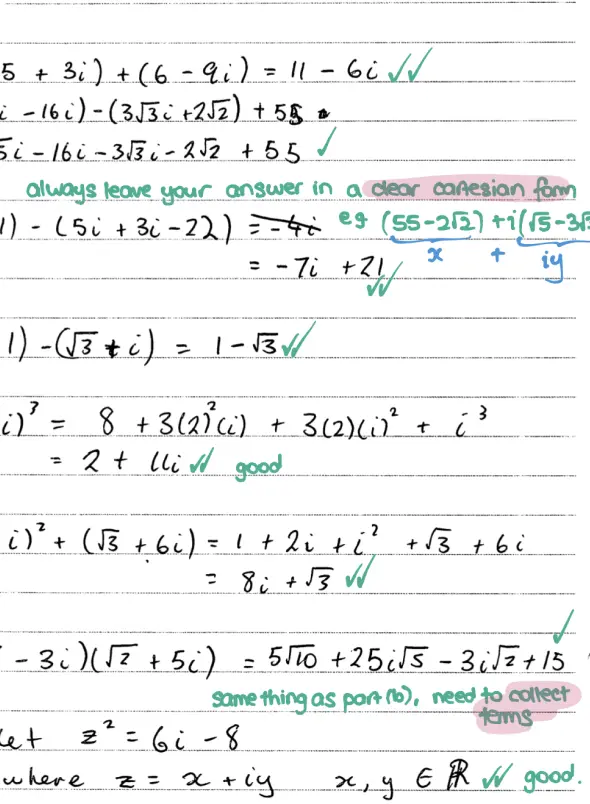 5 + 3i) + (6 - 9i) = 11 - 6i ✓✓
i - 16i) - (3√3i + 2√2) + 55
5i - 16i - 3√3i - 2√2 + 55 ✓
always leave your answer in a clear cartesian form
1) - (5i + 3i - 22) = -4i eg (55-2√2) + i(√5-3√3
= -7i + 21 ✓✓ x + iy
1) - (√3 + i) = 1 - √3 ✓✓
i)³ = 8 + 3(2)²(i) + 3(2)(i)² + i³
= 2 + 11i ✓✓ good
i)² + (√3 + 6i) = 1 + 2i + i² + √3 + 6i
= 8i + √3 ✓✓
- 3i)(√2 + 5i) = 5√10 + 25i√5 - 3i√2 + 15 ✓
same thing as part (b), need to collect
terms
let z² = 6i - 8
where z = x + iy x, y ∈ ℝ ✓✓ good.